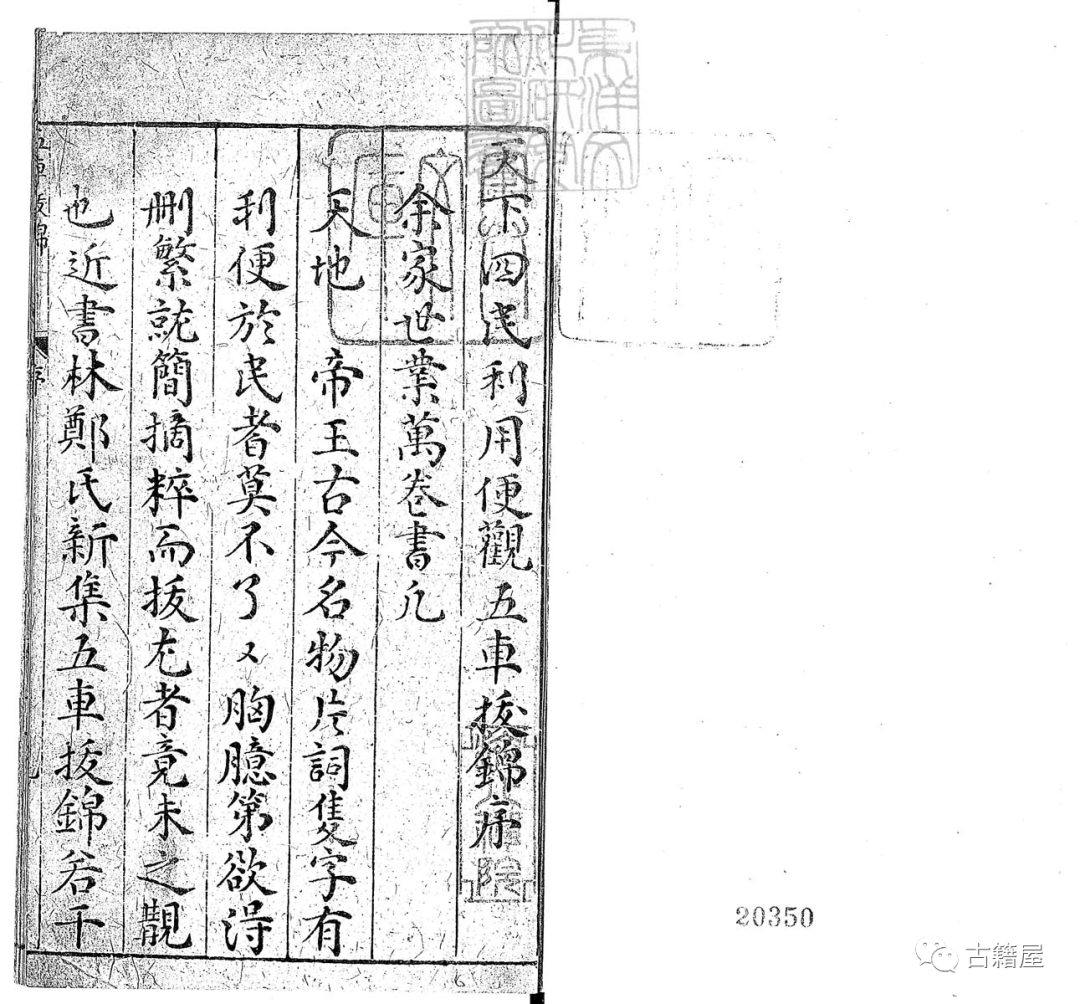 天下四民利用便觀五車拔錦序
余家世業萬卷書凡
天地　帝王古今名物片詞隻字有
利便於民者莫不了々胸臆第欲淂
刪繁就簡摘粹而拔尤者竟未之覩
也近書林鄭氏新集五車拔錦若干
序
20350
古籍屋